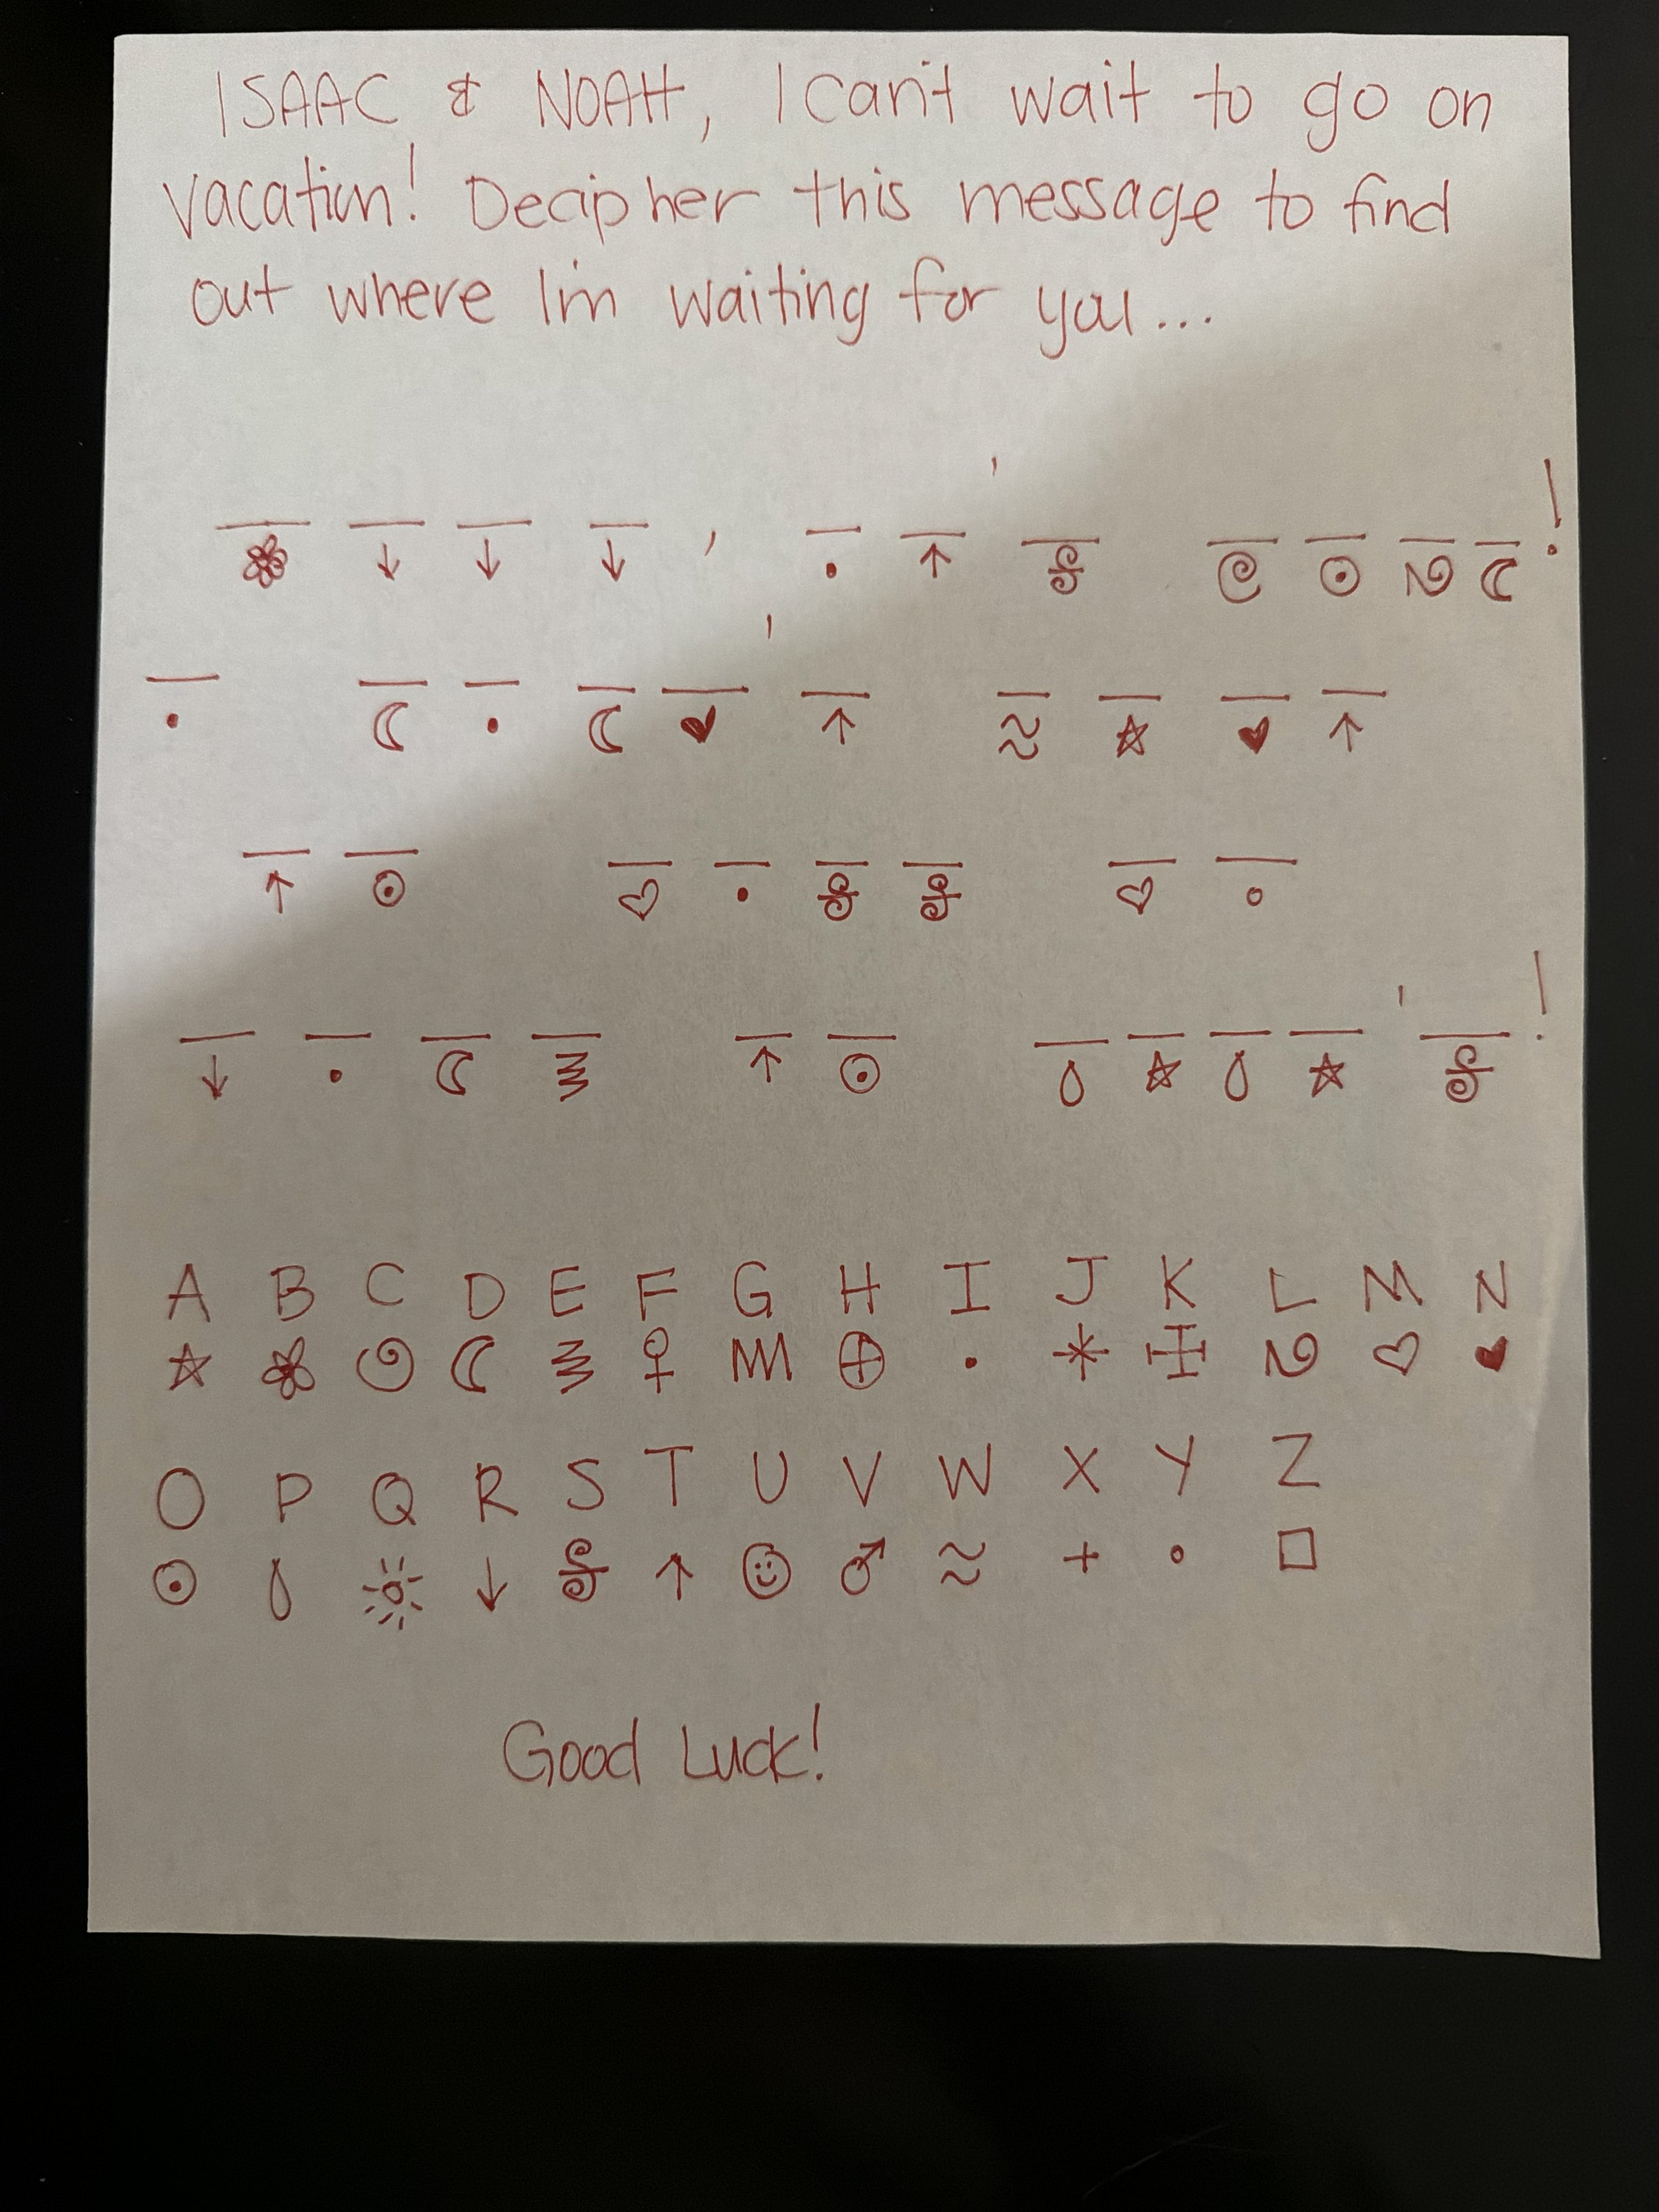 ISAAC & NOAH, I can't wait to go on
vacation! Decipher this message to find
out where I'm waiting for you...
A B C D E F G H I J K L M N
O P Q R S T U V W X Y Z
Good Luck!